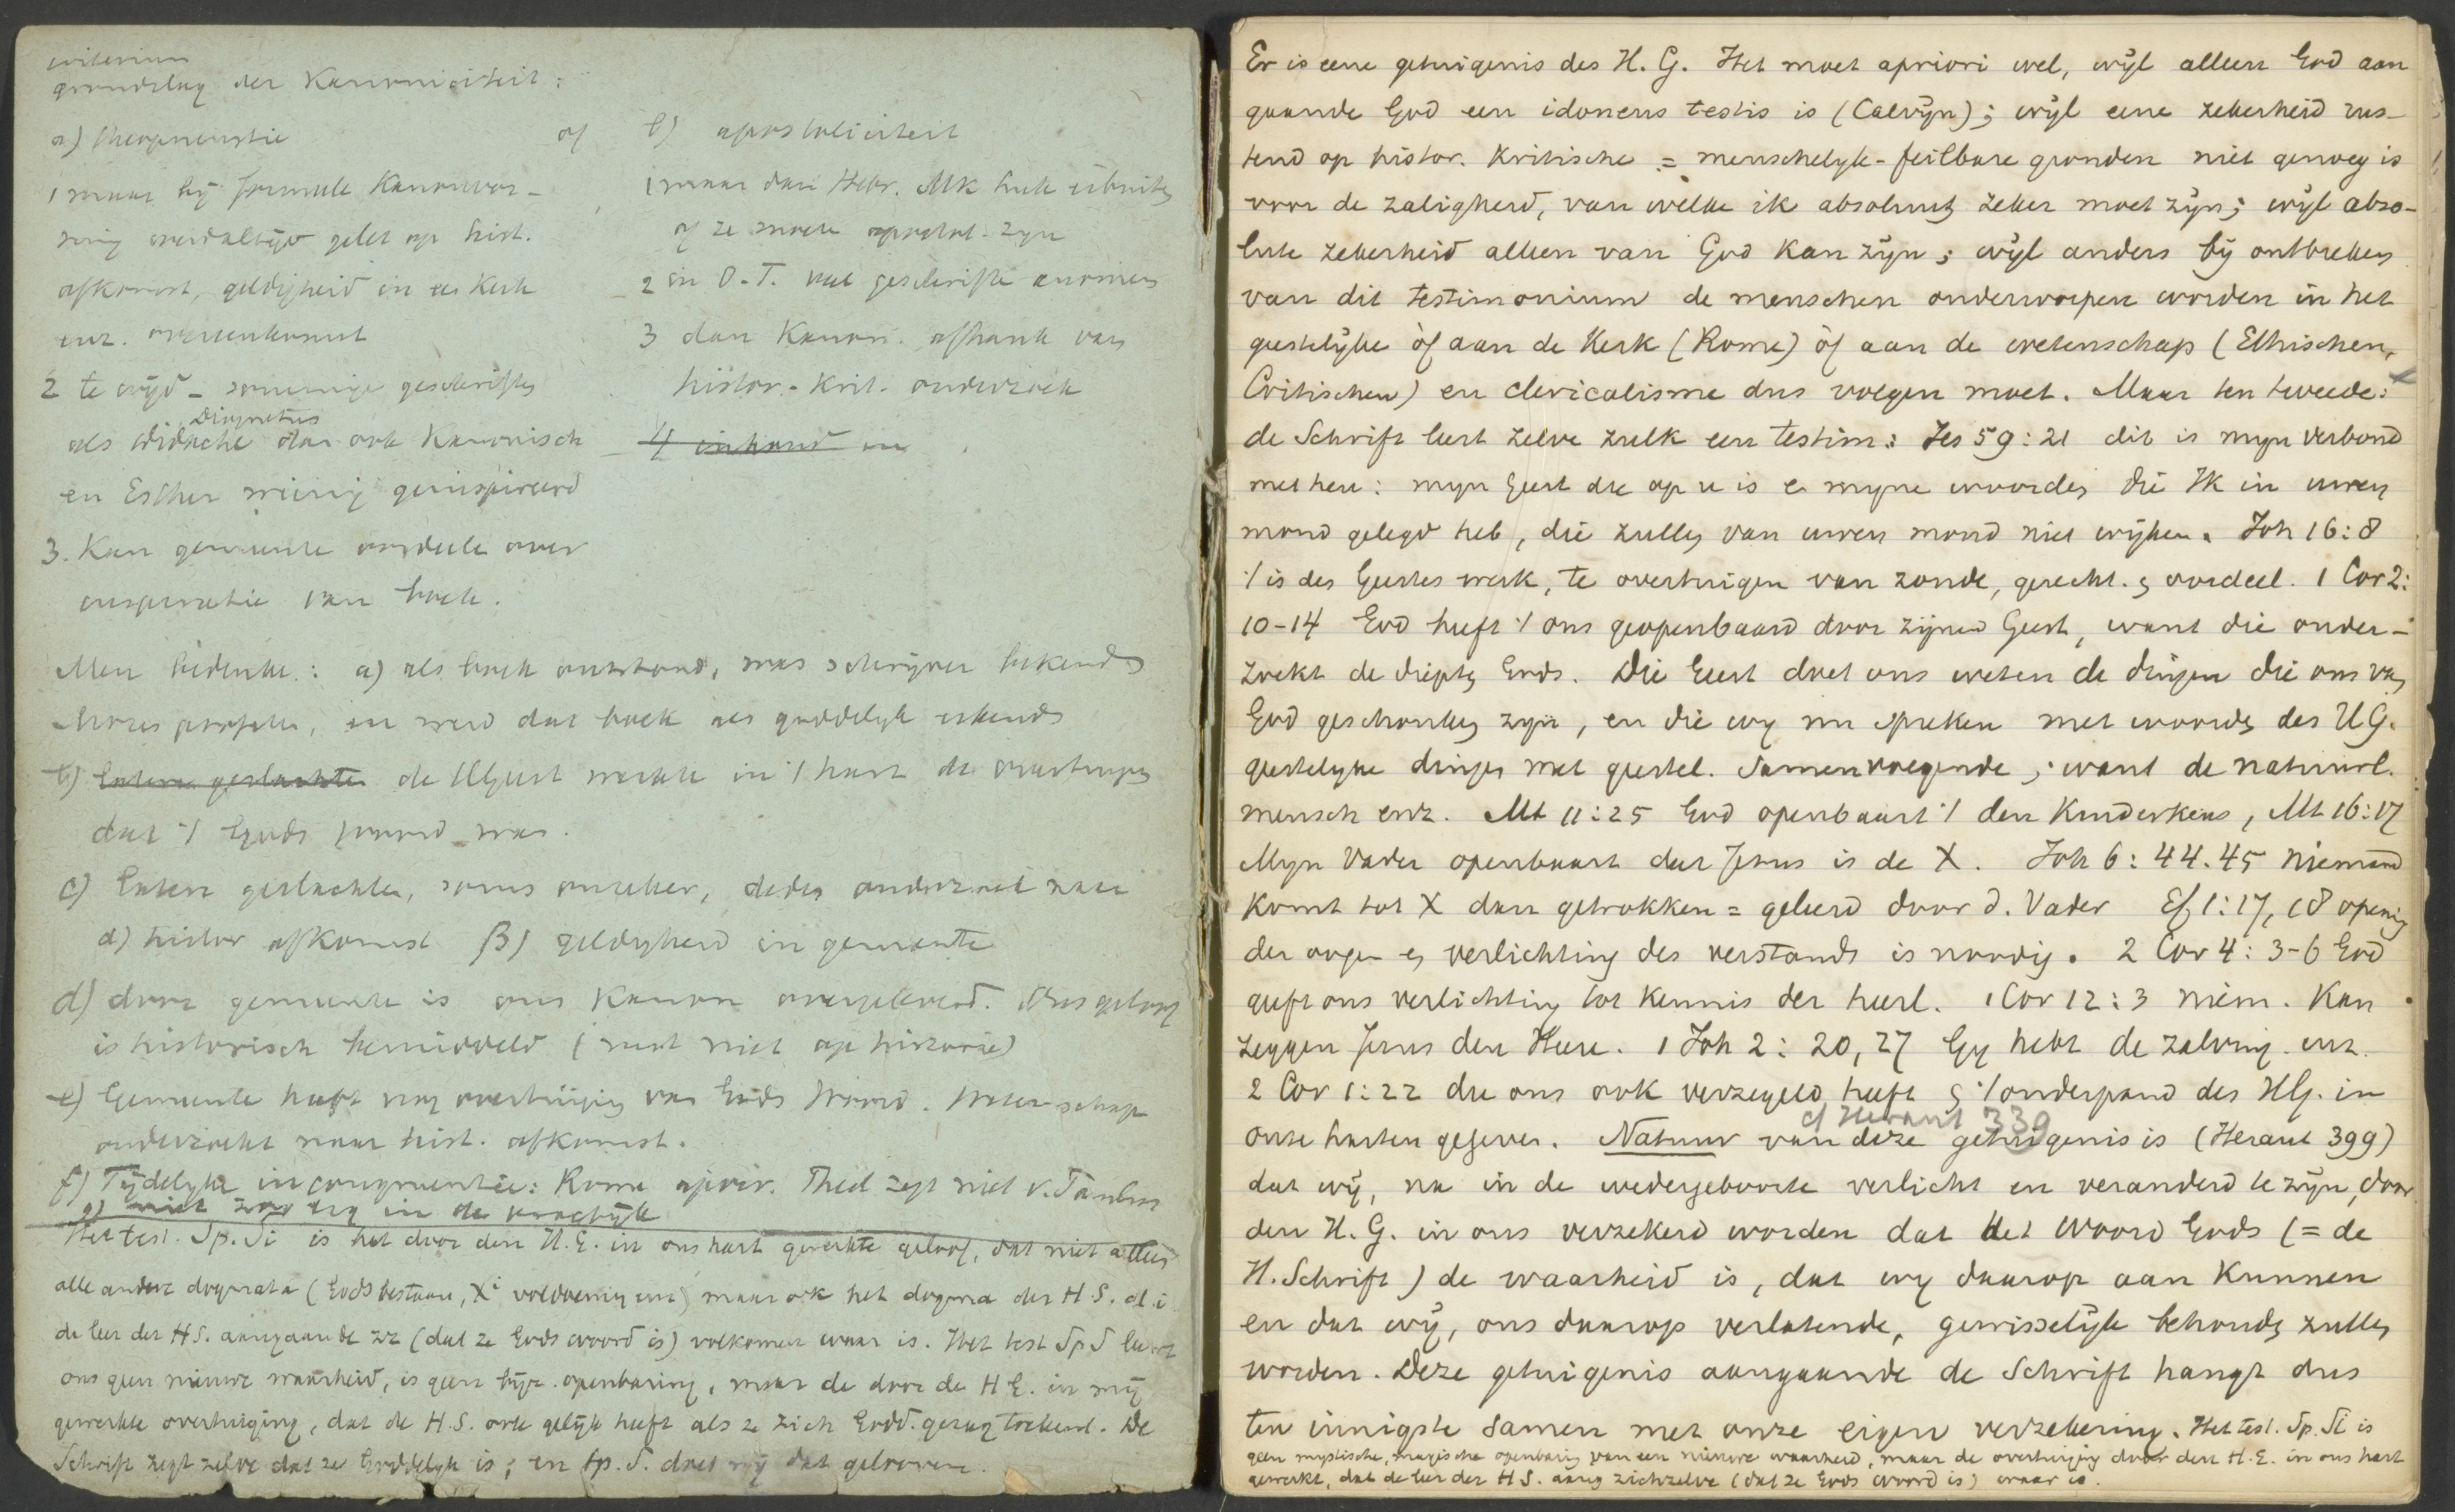 criterium
grondslag der Kanoniciteit:
a) theopneustie of b) apostoliciteit
1 maar bij formule Kanonvor-
ming werd altijd gelet op hist.
afkomst, geldigheid in de Kerk
enz. overeenkomst
2 te wijd - sommige geschriften
Diognetus
als Didache dan ook Kanonisch
en Esther weinig geinspireerd
3. Kan gemeente oordeele over
inspiratie van boek.
1 maar dan Hebr. Mk Luk uitsluiten
of ze moete apostol. zyn
2 in O.T. veel geschrifte anoniem
3 dan Kanon. afhank van
histor.-Krit. onderzoek
4 inhoud in
Men bedenke: a) als boek ontstond, was schrijver bekend
Mozes profete, en werd dat boek als goddelyk erkend
b) latere geslachten de HGeest werkte in 't hart de overtuiging
dat 't Gods woord was.
c) latere geslachten, soms onzeker, deden onderzoek naar
α) histor afkomst β) geldigheid in gemeente
d) door gemeente is ons Kanon overgeleverd. Ons geloof
is historisch bemiddeld (rust niet op historie)
e) Gemeente heeft nog overtuiging van Gods Woord. Wetenschap
onderzoekt naar hist. afkomst.
f) Tijdelyke incongruentie: Rome aprior. Theol zegt niet v. Jacobus
g) niet zoo erg in de practijk
Het test. Sp. Si is het door den H.G. in ons hart gewerkte geloof, dat niet alleen
alle andere dogmata (Gods bestaan, Xi voldoening enz) maar ook het dogma der H.S. d.i
de leer der HS. aangaande zz (dat ze Gods woord is) volkomen waar is. Het test Sp S leert
ons geen nieuwe waarheid, is geen bijz. openbaring, maar de door de H G. in mij
gewerkte overtuiging, dat de H.S. ook gelijk heeft als ze zich Godd. gezag toekent. De
Schrift zegt zelve dat ze Goddelyk is; en Sp. S. doet mij dat gelooven.
Er is eene getuigenis des H. G. Het moet apriori wel, wijl alleen God aan
gaande God een idoneus testis is (Calvijn); wijl eene zekerheid rus-
tend op histor. Kritische = menschelyk-feilbare gronden niet genoeg is
voor de zaligheid, van welke ik absoluut zeker moet zijn; wijl abso-
lute zekerheid alleen van God kan zijn; wijl anders bij ontbreken
van dit testimonium de menschen onderworpen worden in het
geestelijke òf aan de Kerk (Rome) òf aan de wetenschap (Ethischen,
Critischen) en clericalisme dus volgen moet. Maar ten tweede:
de Schrift leert zelve zulk een testim: Jes 59:21 dit is myn verbond
met hen: myn Geest die op u is en myne woorden die Ik in uwen
mond gelegd heb, die zullen van uwen mond niet wijken. Joh 16:8
't is des Geestes werk, te overtuigen van zonde, gerecht. en oordeel. 1 Cor 2:
10-14 God heeft 't ons geopenbaard door zijnen Geest, want die onder-
zoekt de diepten Gods. Die Geest doet ons weten de dingen die ons van
God geschonken zyn, en die wy nu spreken met woorden des HG.
geestelyke dingen met geestel. samenvoegende; want de natuurl.
mensch enz. Mt 11:25 God openbaart 't den Kinderkens, Mt 16:17
Myn Vader openbaart dat Jezus is de X. Joh 6: 44.45 niemand
komt tot X dan getrokken = geleerd door d. Vader Ef 1:17, 18 opening
der oogen en verlichting des verstands is noodig. 2 Cor 4: 3-6 God
geeft ons verlichting tot kennis der heerl. 1 Cor 12:3 niem. kan
zeggen Jezus den Heere. 1 Joh 2: 20, 27 Gy hebt de zalving enz.
2 Cor 1:22 die ons ook verzegeld heeft en 't onderpand des HG. in
cf Heraut 339
onze harten gegeven. Natuur van deze getuigenis is (Heraut 399)
dat wij, na in de wedergeboorte verlicht en veranderd te zijn, door
den H. G. in ons verzekerd worden dat het Woord Gods (= de
H. Schrift) de waarheid is, dat wy daarop aan kunnen
en dat wij, ons daarop verlatende, gewisselijk behouden zullen
worden. Deze getuigenis aangaande de Schrift hangt dus
ten innigste samen met onze eigen verzekering. Het test. Sp. Si is
geen mystische, magische openbaring van een nieuwe waarheid, maar de overtuiging door den H. G. in ons hart
gewerkt, dat de leer der H S. aang zichzelve (dat ze Gods woord is) waar is.